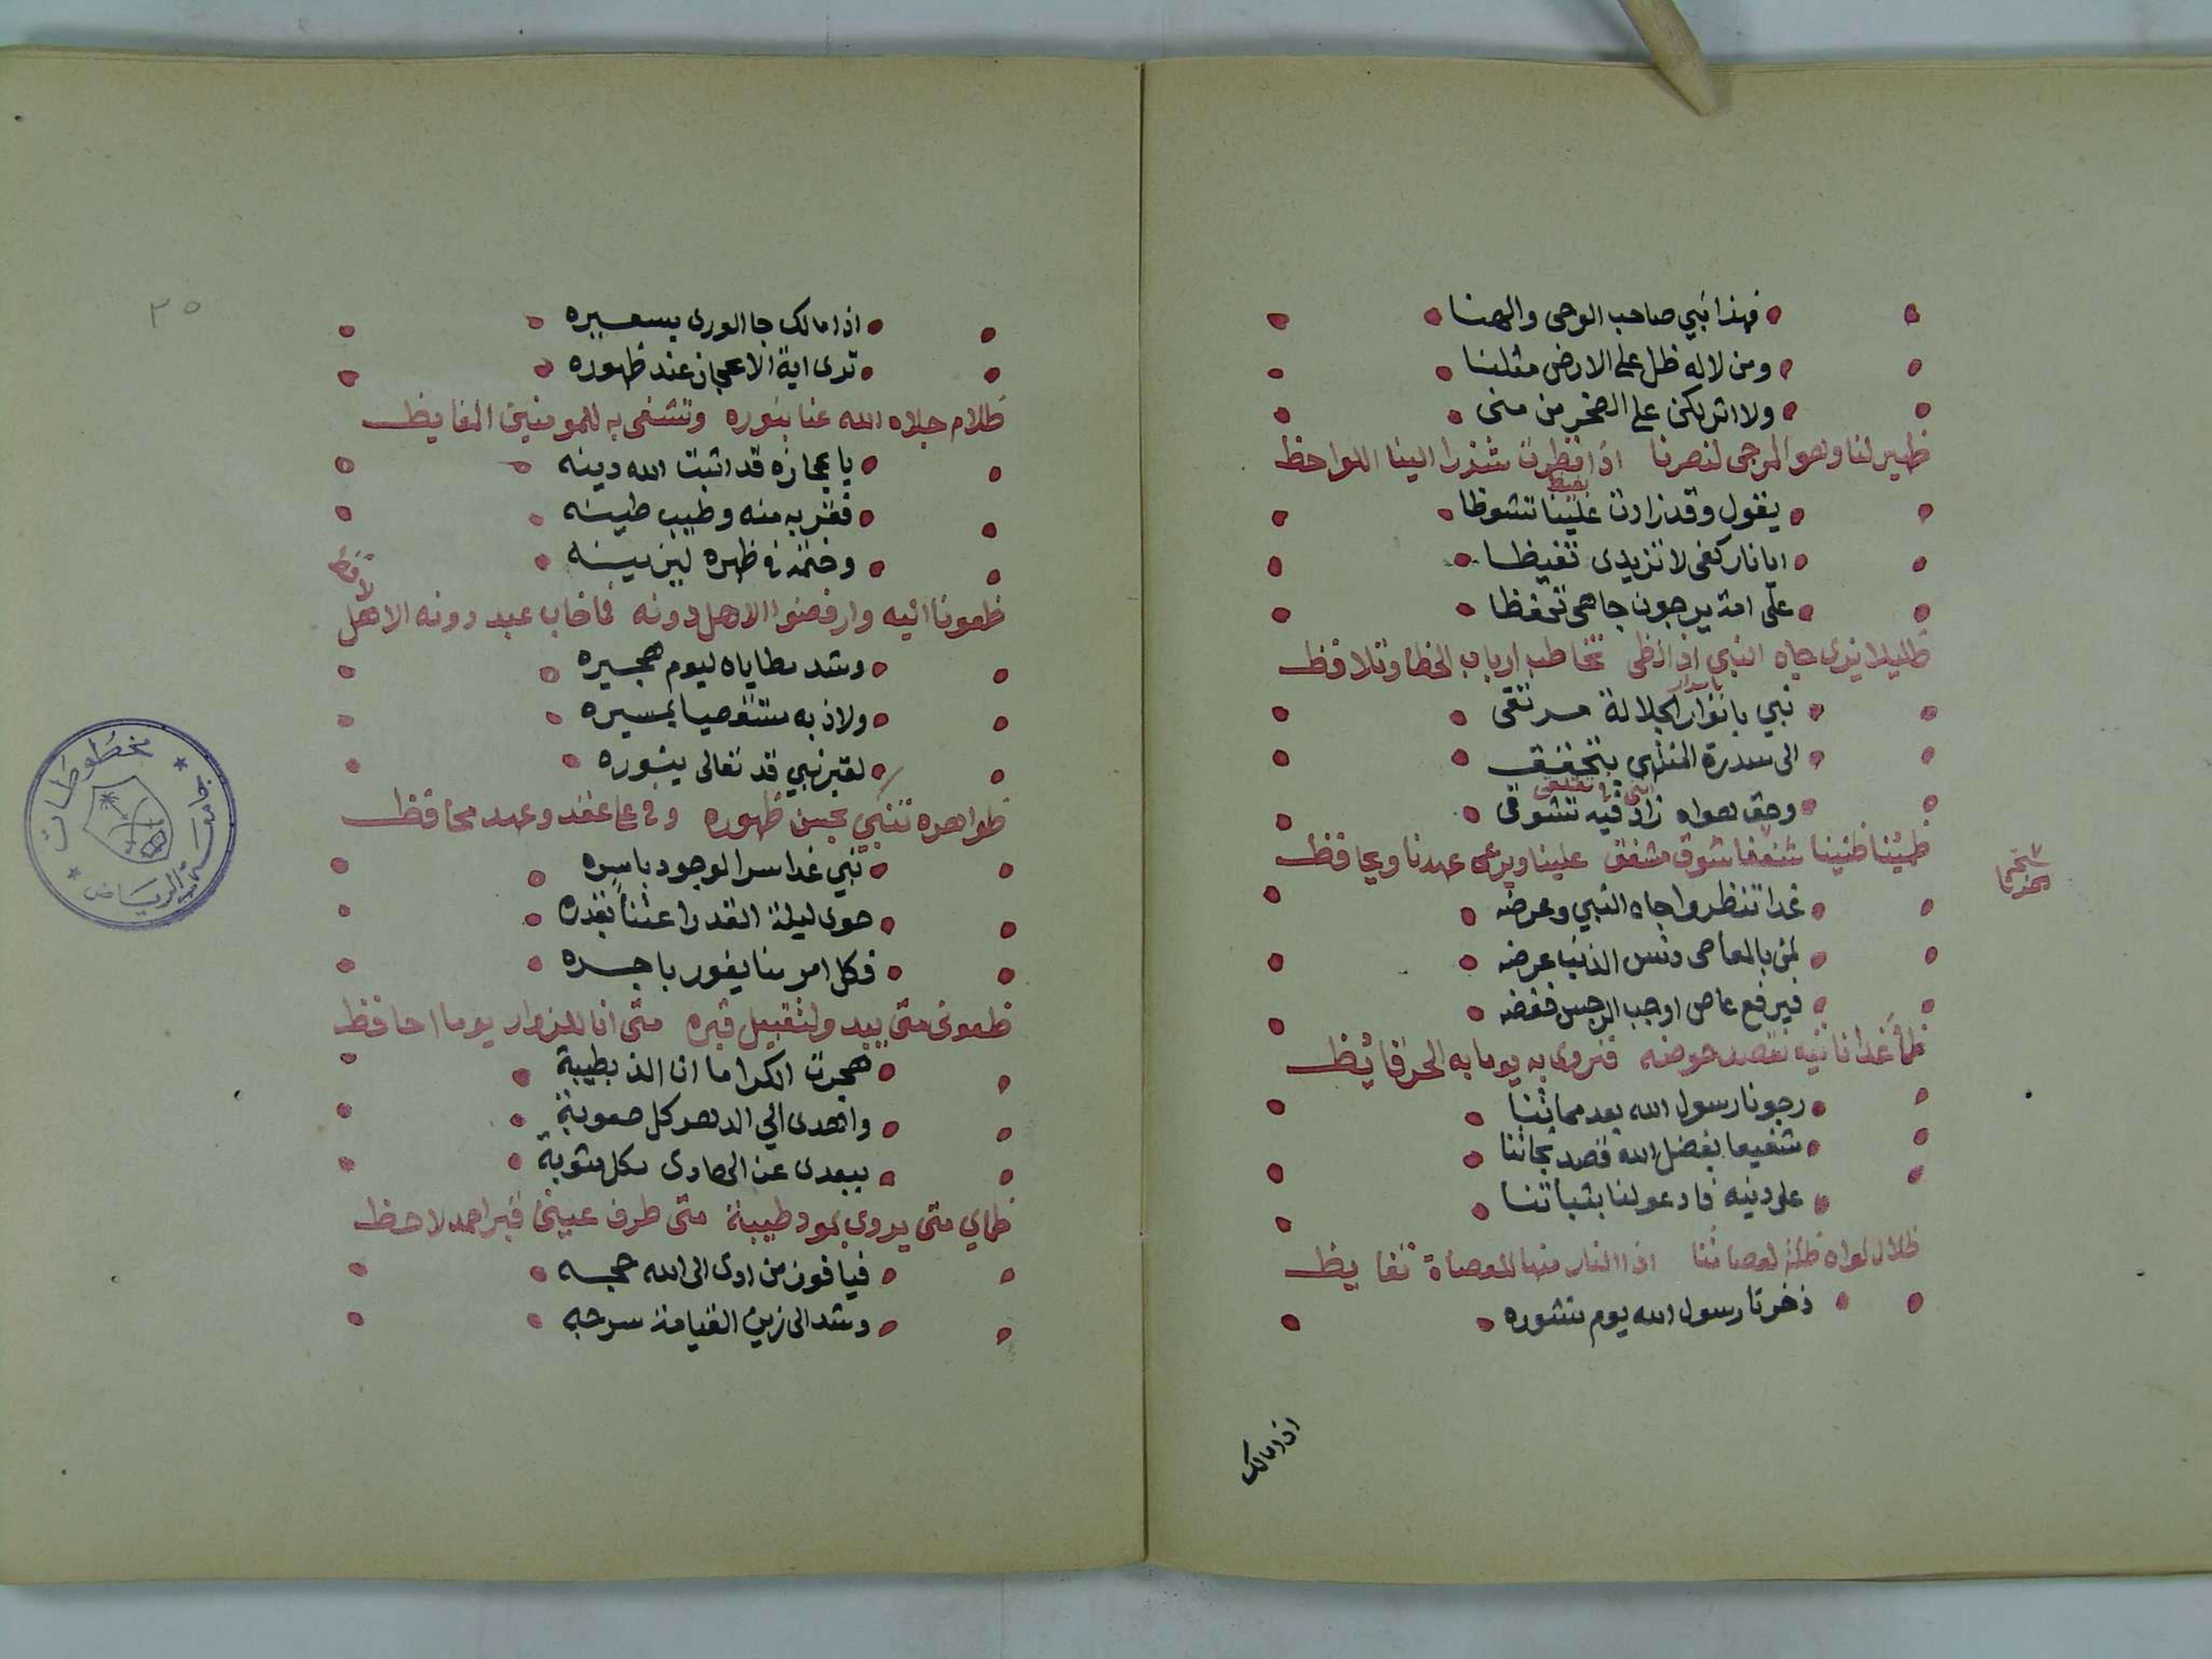 فهذا نبي صاحب الوحى والهنا
ومن لا له ظل على الارض مثلنا
ولا اثر يكن على الصخر من منى
ظهير لنا وهو المرجى لنصرنا اذا نظرت شذرا الينا اللواحظ
يقول وقد زادت علينا تشوظا
ايا نار كفى لا تزيدى تغيظا
على امة يرجون جاهى تحفظا
ظليلا نرى جاه النبي اذا لظى تخاطب ارباب الخطا وتلافظ
نبي بانوار الجلالة مرتقى
الى سدرة المنتهى بتحقق
وحق هواه زاد فيه تشوقى
ظمئنا ظمئنا شغفا شوق مشفق علينا ويرعى عهدنا ويحافظ
غدا تنظروا جاه النبي وعرضه
لمن بالمعاصى دنس الذنب عرضه
فيرفع عاص اوجب الرجس خفضه
ظمأ غدا ناتيه نقصد حوضه فنروى به يوما به الحر قائظ
رجونا رسول الله بعد مماتنا
شفيعا بفضل الله قصد نجاتنا
على دينه فادعو لنا بثباتنا
ظلال لواه ظلة لعصاتنا اذا النار منها للعصاة تغايظ
ذخرنا رسول الله يوم نشوره
اذا مالك
٣٥
اذا مالك جا الورى بسعيره
ترى اية الاعجاز عند ظهوره
ظلام جلاه الله عنا بنوره وتشفى به للمومنين المغايظ
باعجازه قد اثبت الله دينه
فقربه منه وطيب طينه
وختمه فى ظهره ليزينه
ظعونا اليه وارفضوا الاهل دونه فما خاب عبد دونه الاهل لافظ
وشد مطاياه ليوم هجيره
ولاذ به مستوصيا بمسيره
لقبر نبي قد تعالى بنوره
ظواهره تنبي بحسن ظهوره وفى على عقد وعهد محافظ
نبي غدا سر الوجود باسره
حوى ليلة القدر اعتنا بقدره
فكل امر منا يفوز باجره
ظعونى متى يبد ولتقبيل قبره متى انا للزوار يوما احافظ
هجرت الكرا ما ان الذ بطيبة
واهدى الي الدهر كل صعوبة
ببعدى عن الهادى بكل مثوبة
ظماي متى يروى بمورد طيبة متى طرف عينى قبر احمد لاحظ
فيا فوز من ادى الى الله حجه
وشد الى زين القيامة سرجه
مخطوطات
جامعة الرياض